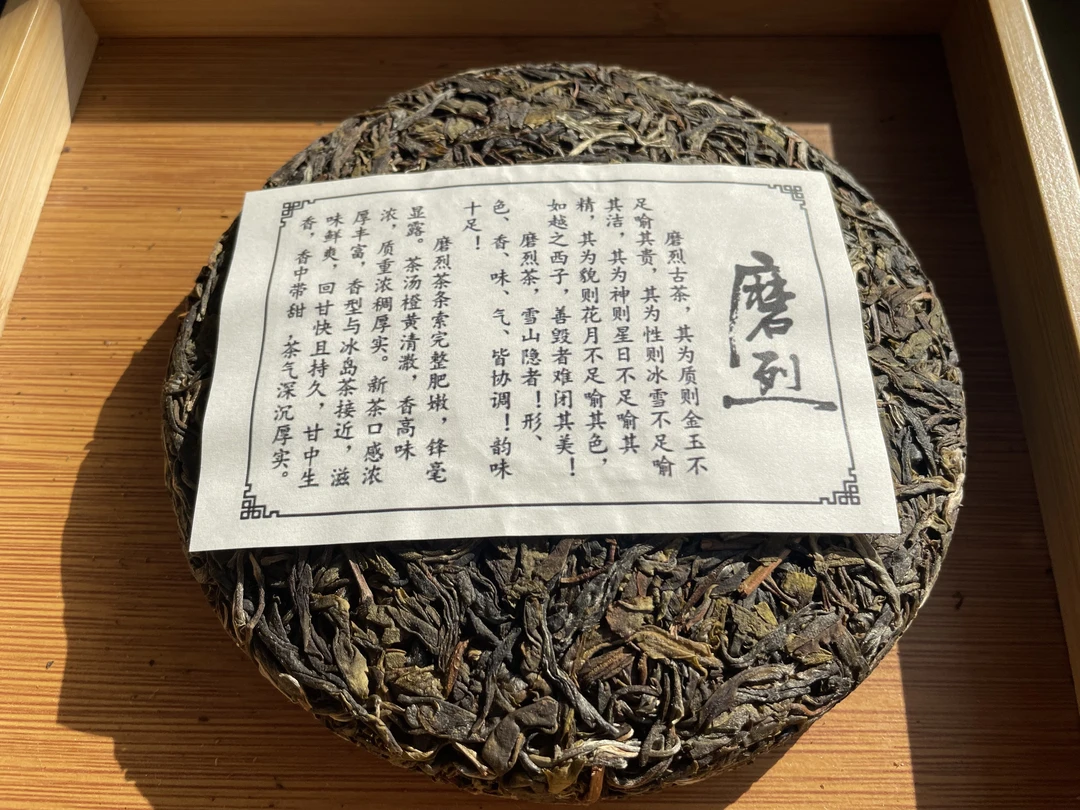 磨烈
磨烈古茶，其为质则金玉不
足喻其贵，其为性则冰雪不足喻
其洁，其为神则星日不足喻其
精，其为貌则花月不足喻其色，
如越之西子，善毁者难闭其美！
磨烈茶，雪山隐者！形、
色、香、味、气、皆协调！韵味
十足！
磨烈茶条索完整肥嫩，锋毫
显露。茶汤橙黄清澈，香高味
浓，质重浓稠厚实。新茶口感浓
厚丰富，香型与冰岛茶接近，滋
味鲜爽，回甘快且持久，甘中生
香，香中带甜，茶气深沉厚实。